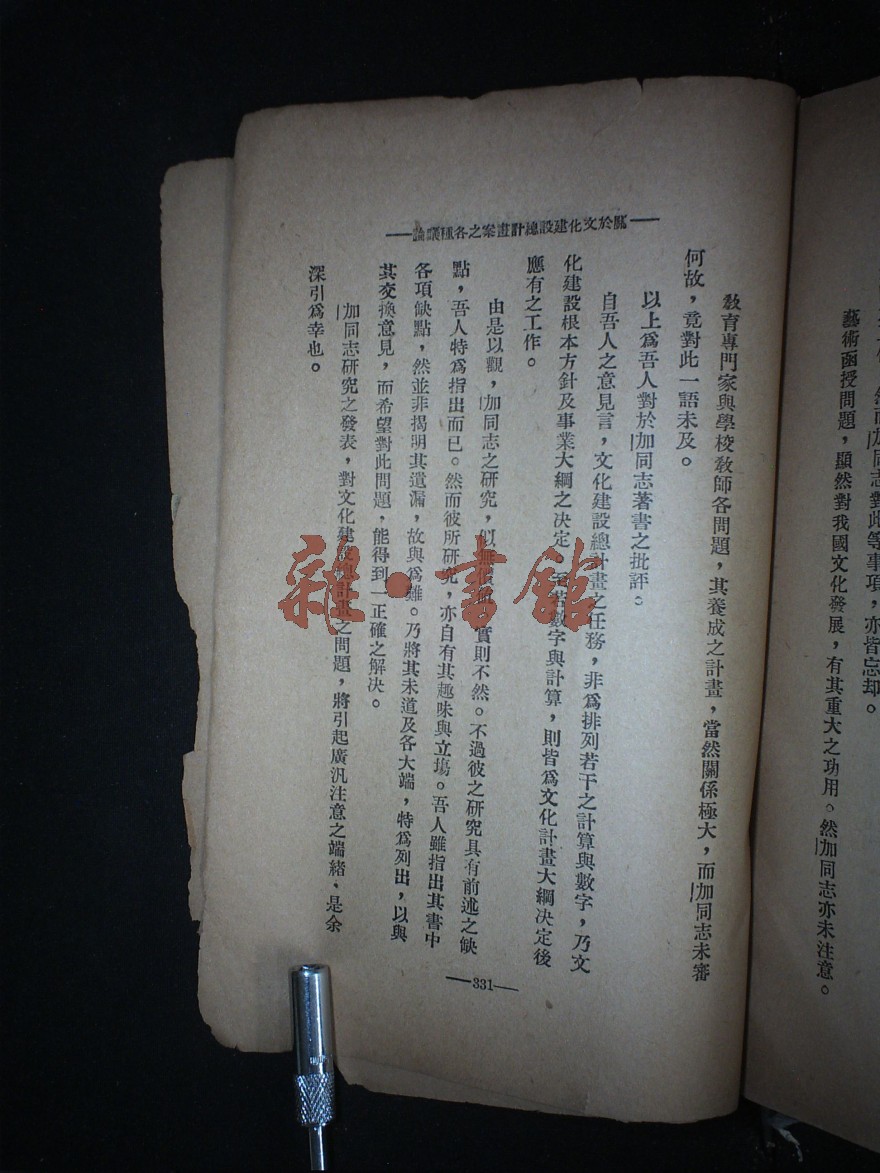 然而加同志對此等事項，亦皆忘却。
藝術函授問題，顯然對我國文化發展，有其重大之功用。然加同志亦未注意。
關於文化建設總計畫案之各種議論
教育專門家與學校教師各問題，其養成之計畫，當然關係極大，而加同志未審
何故，竟對此一語未及。
以上爲吾人對於加同志著書之批評。
自吾人之意見言，文化建設總計畫之任務，非爲排列若干之計算與數字，乃文
化建設根本方針及事業大綱之決定。至若數字與計算，則皆爲文化計畫大綱決定後
應有之工作。
由是以觀，加同志之研究，似無價値，實則不然。不過彼之研究具有前述之缺
點，吾人特爲指出而已。然而彼所研究，亦自有其趣味與立場。吾人雖指出其書中
各項缺點，然並非揭明其遺漏，故與爲難。乃將其未道及各大端，特爲列出，以與
其交換意見，而希望對此問題，能得到一正確之解決。
加同志研究之發表，對文化建設總計畫之問題，將引起廣汎注意之端緒、是余
深引爲幸也。
331
雜·書館